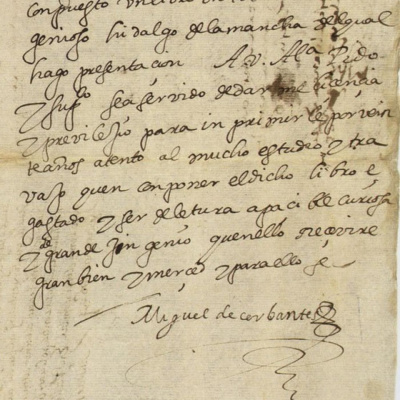 conpuesto un libro
genioso hidalgo de la mancha del qual
hago presentacion A. V. Alª. Pido
y sup^co sea servido de darme licencia
y previlejio para inprimirle por vein
te años atento al mucho estudio y tra
vajo quen conponer el dicho libro e
gastado y ser de letura apacible curiosa
y de grande ingenio quenello rrecevire
gran bien y merced y para ello &
Miguel de cerbantes